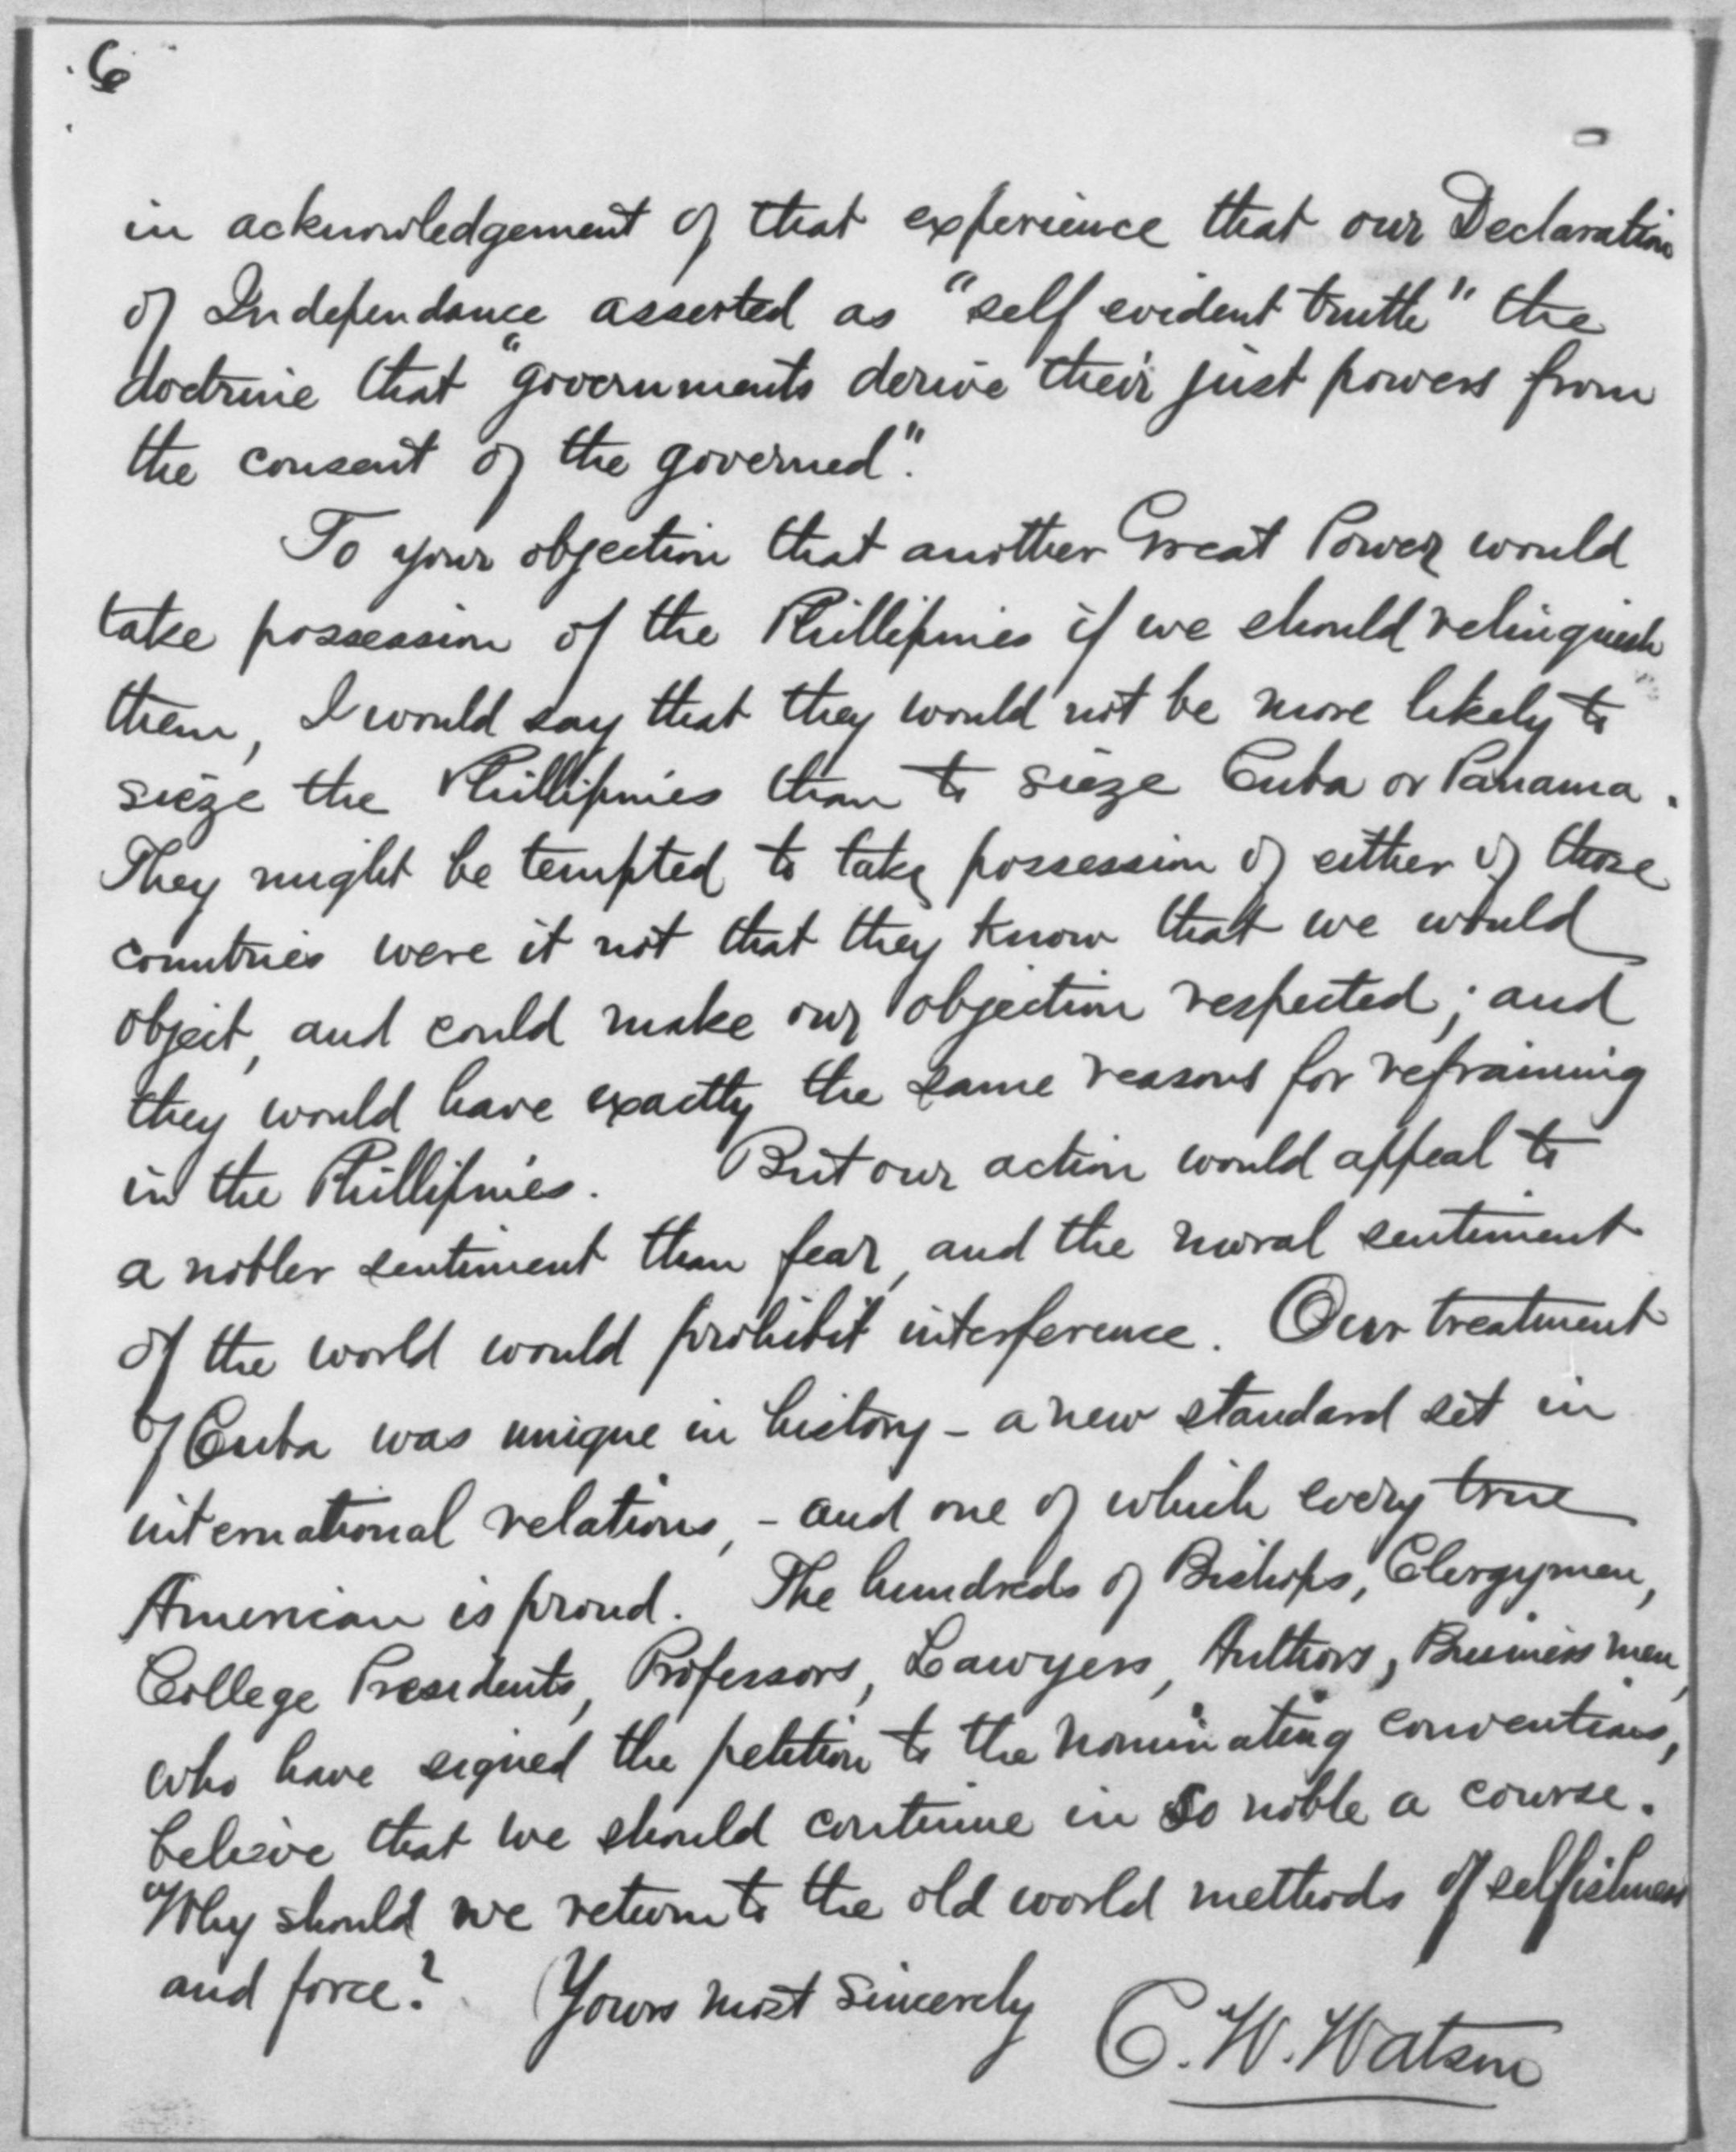 6
in acknowledgement of that experience that our Declaration
of Independance asserted as "self evident truth" the
doctrine that "governments derive their just powers from
the consent of the governed".
To your objection that another Great Power would
take possession of the Phillipines if we should relinquish
them, I would say that they would not be more likely to
sieze the Phillipines than to sieze Cuba or Panama.
They might be tempted to take possession of either of those
countries were it not that they know that we would
object, and could make our objection respected; and
they would have exactly the same reasons for refraining
in the Phillipines. But our action would appeal to
a nobler sentiment than fear, and the moral sentiment
of the world would prohibit interference. Our treatment
of Cuba was unique in history - a new standard set in
international relations, - and one of which every true
American is proud. The hundreds of Bishops, Clergymen,
College Presidents, Professors, Lawyers, Authors, Business men,
who have signed the petition to the nominating conventions,
believe that we should continue in so noble a course.
Why should we return to the old world methods of selfishness
and force? Yours most sincerely
C. W. Watson